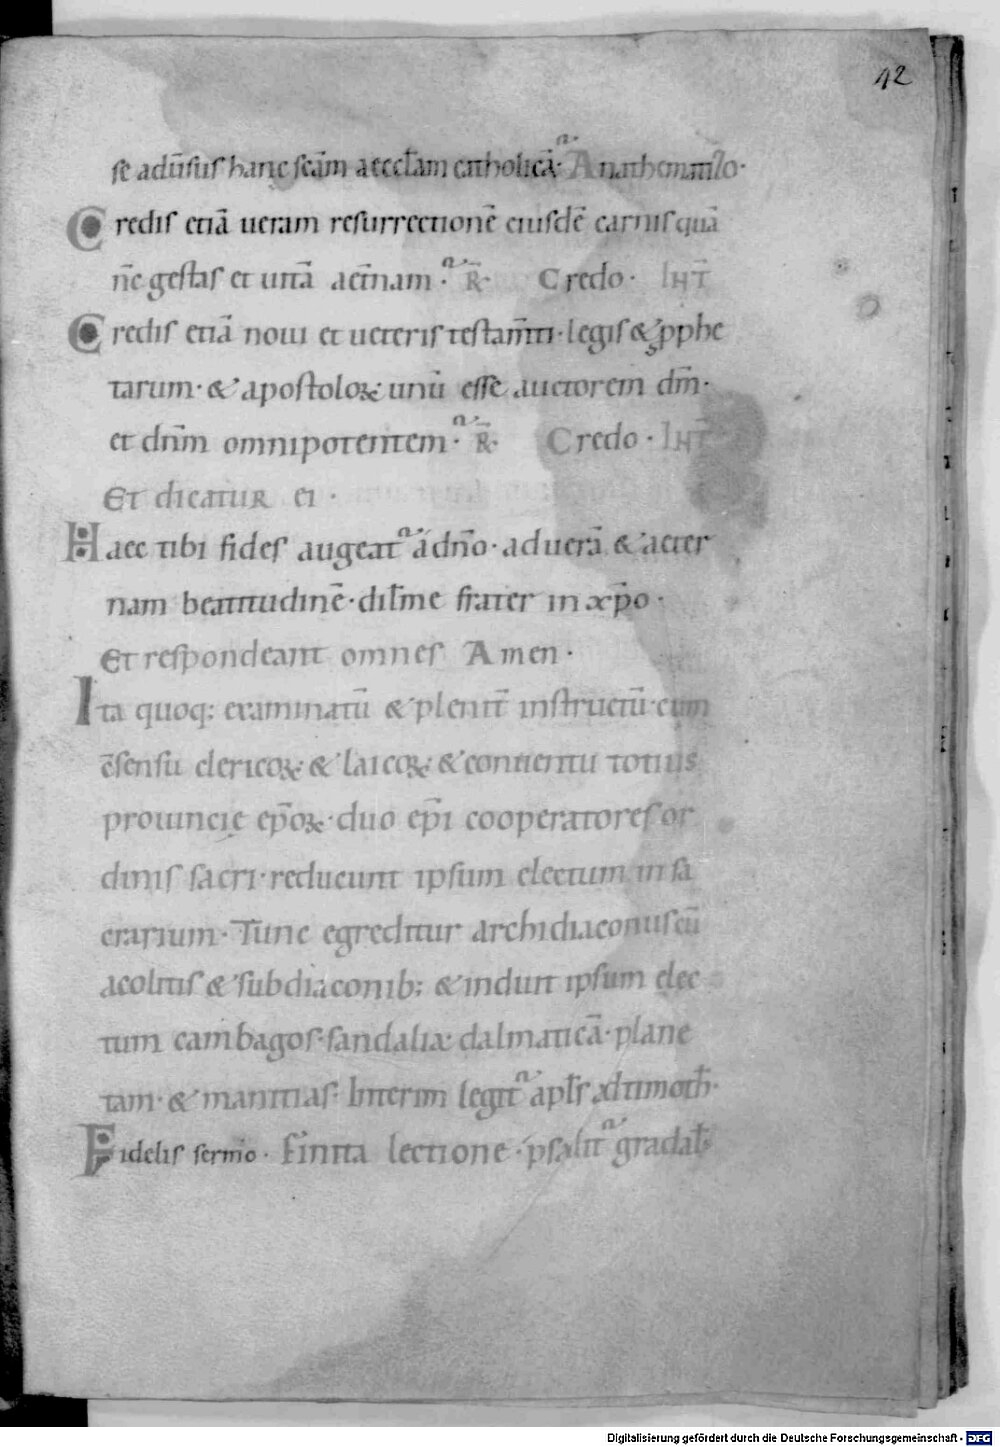 42
se adu̅sus hanc sc̅am aeccl̅am catholica̅· Anathematizo·
Credis etia̅ ueram resurrectione̅ eiusde̅ carnis qua̅
nc̅ gestas et uita̅ aet̅nam· R̅· Credo· INT̅
Credis etia̅ noui et ueteris testam̅ti· legis & pphe
tarum· & apostoloꝝ unu̅ esse auctorem dm̅·
et dn̅m omnipotentem· R̅· Credo· INT̅
Et dicatur ei·
Haec tibi fides augeat᷑ a dn̅o· ad uera̅ & aeter
nam beatitudine̅· dil̅me frater in xp̅o·
Et respondeant omnes Amen·
Ita quoq; examinatu̅ & plenit̅ instructu̅ cum
c̅sensu clericoꝝ & laicoꝝ & conuentu totius
prouincię ep̅oꝝ· duo ep̅i cooperatores or
dinis sacri· reducunt ipsum electum in sa
crarium· Tunc egreditur archidiaconus cu̅
acolitis & subdiaconib; & indun̅t ipsum elec
tum cambagos· sandalia· dalmatica̅· plane
tam· & manicas· Interim legit᷑ apl̅s ad timoth̅·
Fidelis sermo· Finita lectione· psalit᷑ gradal̅
Digitalisierung gefördert durch die Deutsche Forschungsgemeinschaft - DFG